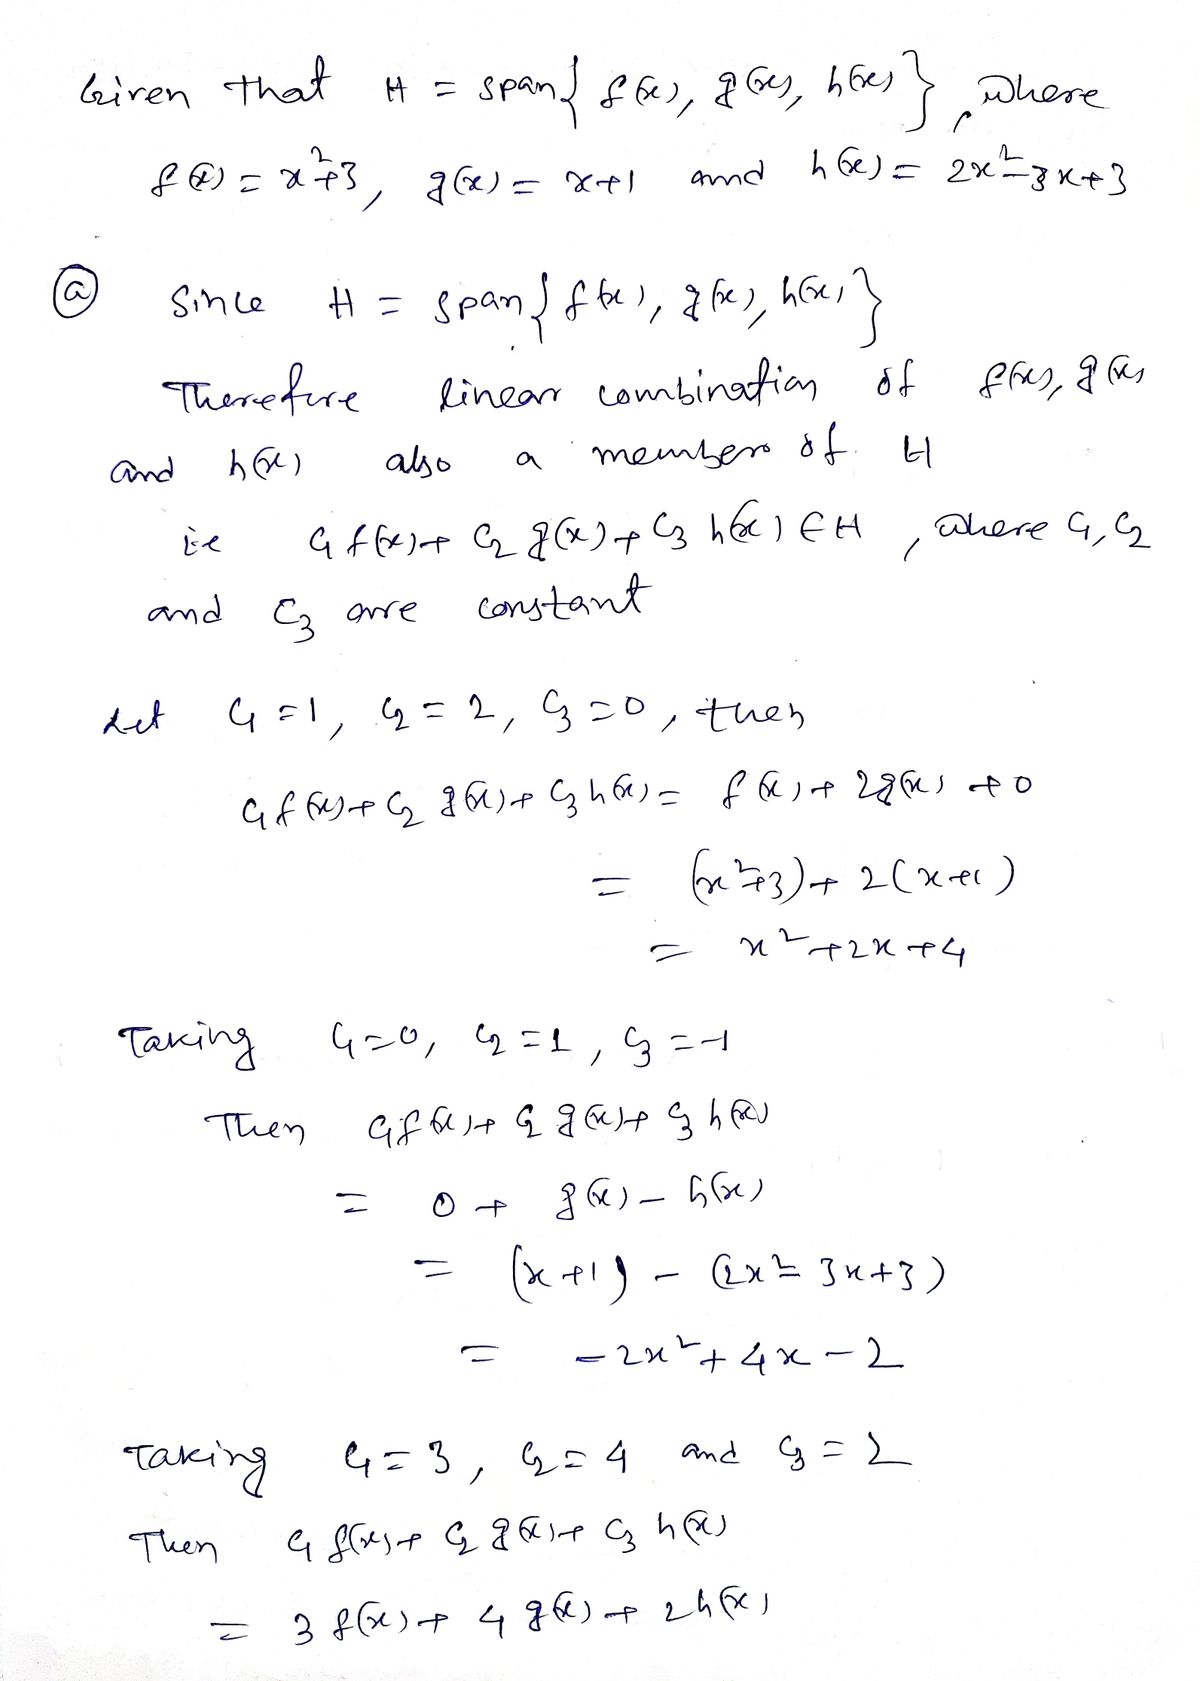 Given that H = span{ f(x), g(x), h(x) }, where
f(x) = x²+3, g(x) = x+1 and h(x) = 2x²-3x+3
(a) Since H = span{ f(x), g(x), h(x) }
Therefore linear combination of f(x), g(x)
and h(x) also a member of H
ie C₁ f(x) + C₂ g(x) + C₃ h(x) ∈ H, where C₁, C₂
and C₃ are constant
Let C₁ = 1, C₂ = 2, C₃ = 0, then
C₁ f(x) + C₂ g(x) + C₃ h(x) = f(x) + 2g(x) + 0
= (x²+3) + 2(x+1)
= x² + 2x + 4
Taking C₁ = 0, C₂ = 1, C₃ = -1
Then C₁ f(x) + C₂ g(x) + C₃ h(x)
= 0 + g(x) - h(x)
= (x+1) - (2x² - 3x+3)
= -2x² + 4x - 2
Taking C₁ = 3, C₂ = 4 and C₃ = 2
Then C₁ f(x) + C₂ g(x) + C₃ h(x)
= 3 f(x) + 4 g(x) + 2h(x)